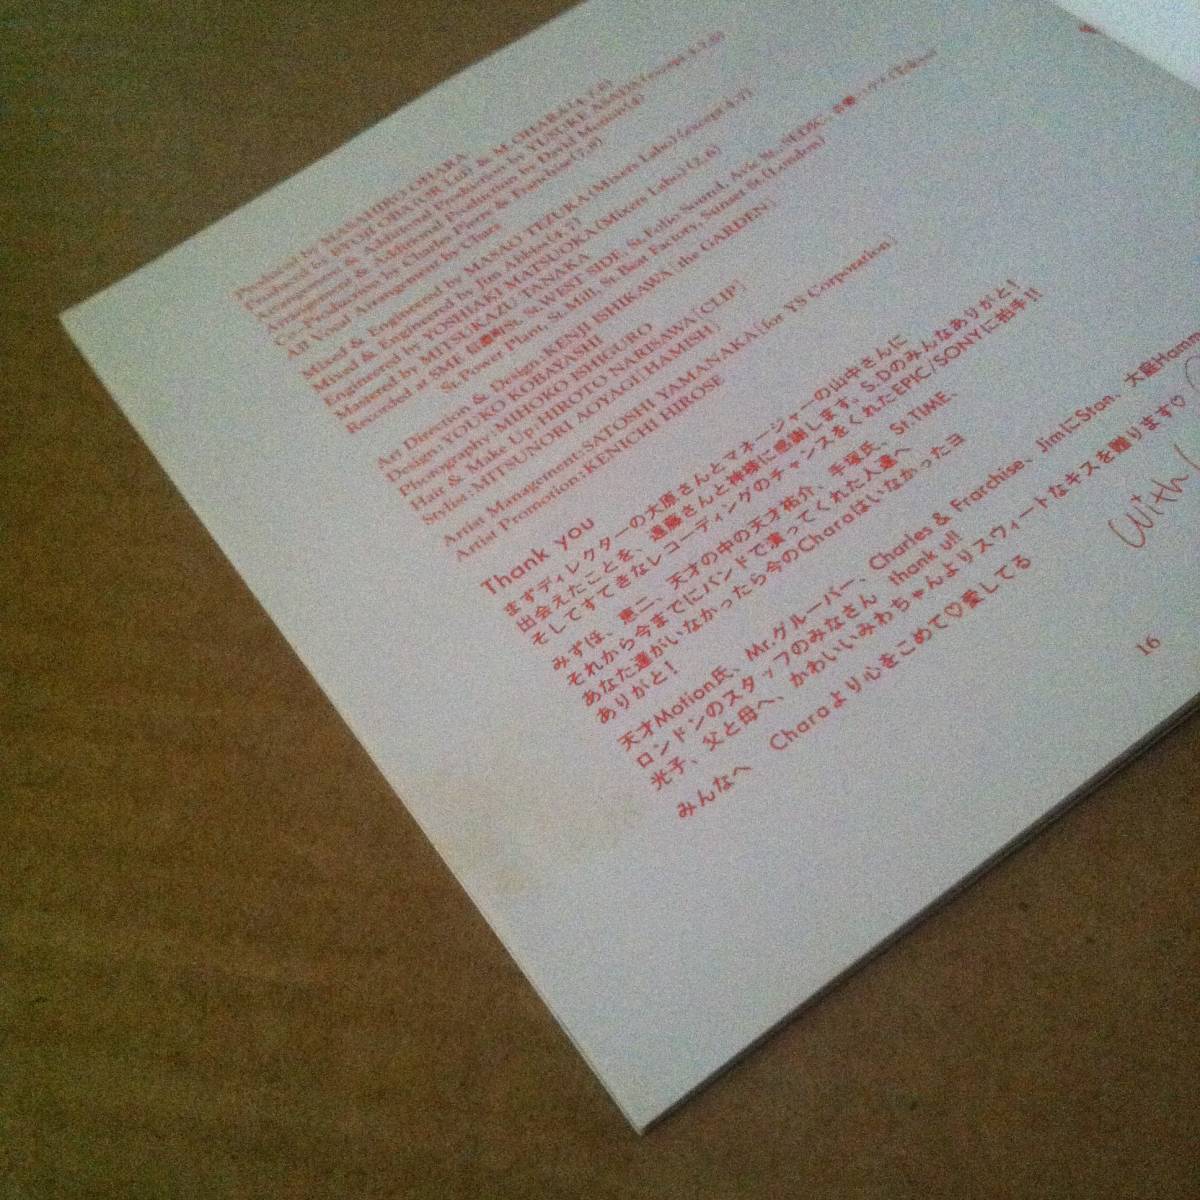 MASAHIRO OHARA
& M. OHARA(4,7,8)
by YUSUKE
Production by David Motion(4)
Co-Production by Charles Pierre & Franchise(7,9)
All Vocal Arrangement by Chara
Mixed & Engineered by MASAO TEZUKA(Mixers Labo)(except 4,7)
Mixed & Engineered by Jim Abbiss(4,7)
Engineered by YOSHIAKI MATSUOKA(Mixers Labo)(2,6)
Mastered by MITSUKAZU TANAKA
Recorded at SME St. WEST SIDE, St.Folio Sound,
St.Power Plant, St.Mill, St.Beat Factory, Sunset St.(London)
Art Direction & Design:KENJI ISHIKAWA[the GARDEN]
Design:YOUKO KOBAYASHI
Photography:MIHOKO ISHIGURO
Hair & Make-Up:HIROTO NARISAWA[CLIP]
Stylist:MITSUNORI AOYAGI[HAMISH]
Artist Management:SATOSHI YAMANAKA[for YS Corporation]
Artist Promotion:KENICHI HIROSE
Thank you
まずディレクターの大原さんとマネージャーの山中さんに
出会えたことを、遠藤さんと神様に感謝します。S.Dのみんなありがと!
そしてすてきなレコーディングのチャンスをくれたEPIC/SONYに拍手!!
みずほ、恵二、天才の中の天才祐介、手塚氏、St.TIME、
それから今までにバンドで演ってくれた人達へ
あなた達がいなかったら今のCharaはいなかったヨ
ありがと!
天才Motion氏、Mr.グルーバー、Charles & Franchise、JimにStan、大庭Hamm
ロンドンのスタッフのみなさん thank u!!
光子、父と母へ、かわいいみわちゃんよりスウィートなキスを贈ります♡
みんなへ Charaより心をこめて♡愛してる
With
16